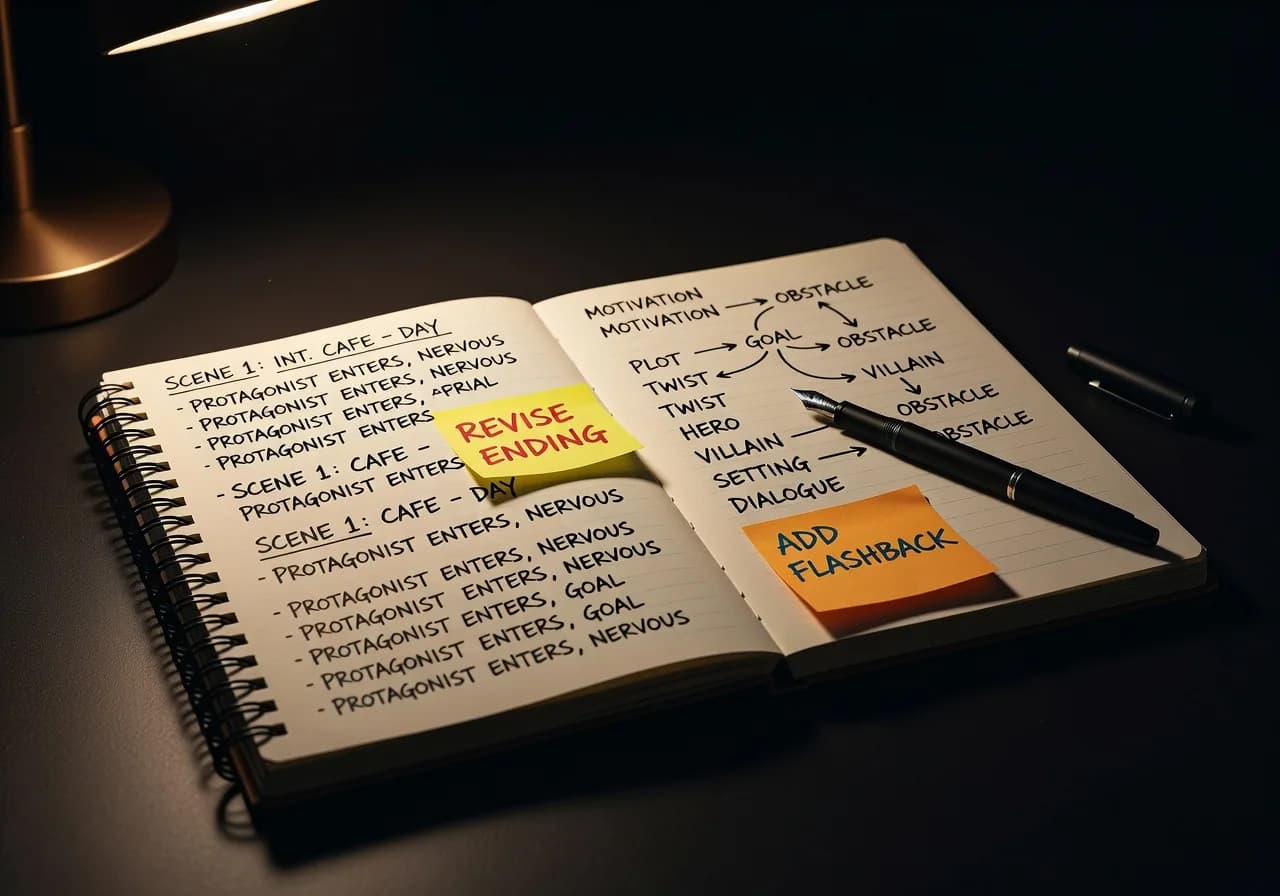 SCENE 1: INT. CAFE - DAY
- PROTAGONIST ENTERS, NERVOUS
- PROTAGONIST ENTERS, NERVOUS
- PROTAGONIST ENTERS,
- PROTAGONIST ENTERS
- SCENE 1: CAFE -
PROTAGONIST ENTERS
SCENE 1: CAFE - DAY
- PROTAGONIST ENTERS, NERVOUS
- PROTAGONIST ENTERS, NERVOUS
- PROTAGONIST ENTERS, NERVOUS
- PROTAGONIST ENTERS, GOAL
- PROTAGONIST ENTERS, GOAL
- PROTAGONIST ENTERS, NERVOUS
REVISE
ENDING
MOTIVATION
MOTIVATION → OBSTACLE
PLOT → GOAL → OBSTACLE
TWIST
VILLAIN
TWIST
OBSTACLE
HERO
OBSTACLE
VILLAIN
SETTING
DIALOGUE
ADD
FLASHBACK